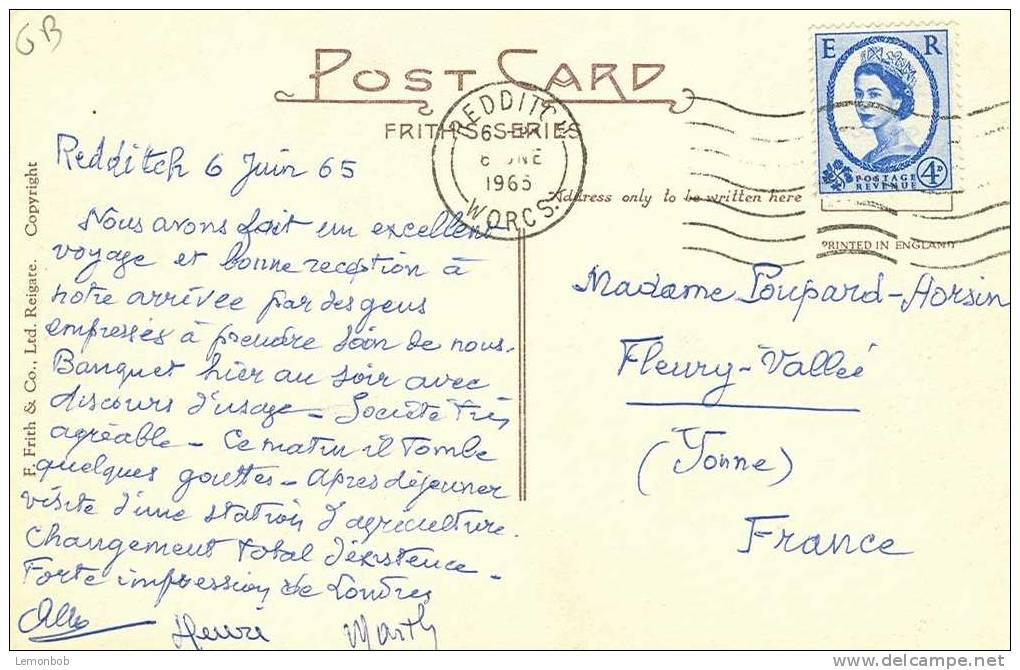 GB
POST CARD
FRITH'S SERIES
REDDITCH
6 JNE
1965
WORCS.
E R
POSTAGE
REVENUE
4D
Address only to be written here
PRINTED IN ENGLAND
F. Frith & Co., Ltd. Reigate. Copyright
Redditch 6 Juin 65
Nous avons fait un excellent
voyage et bonne reception à
notre arrivée par des gens
empressés à prendre soin de nous.
Banquet hier au soir avec
discours d'usage - Société très
agréable - Ce matin il tombe
quelques gouttes - Après déjeuner
visite d'une station d'agriculture.
Changement total d'existence -
Forte impression de Londres
Henri
Madame Poupard-Horsin
Fleury-Vallée
(Yonne)
France
Lemonbob
www.delcampe.net